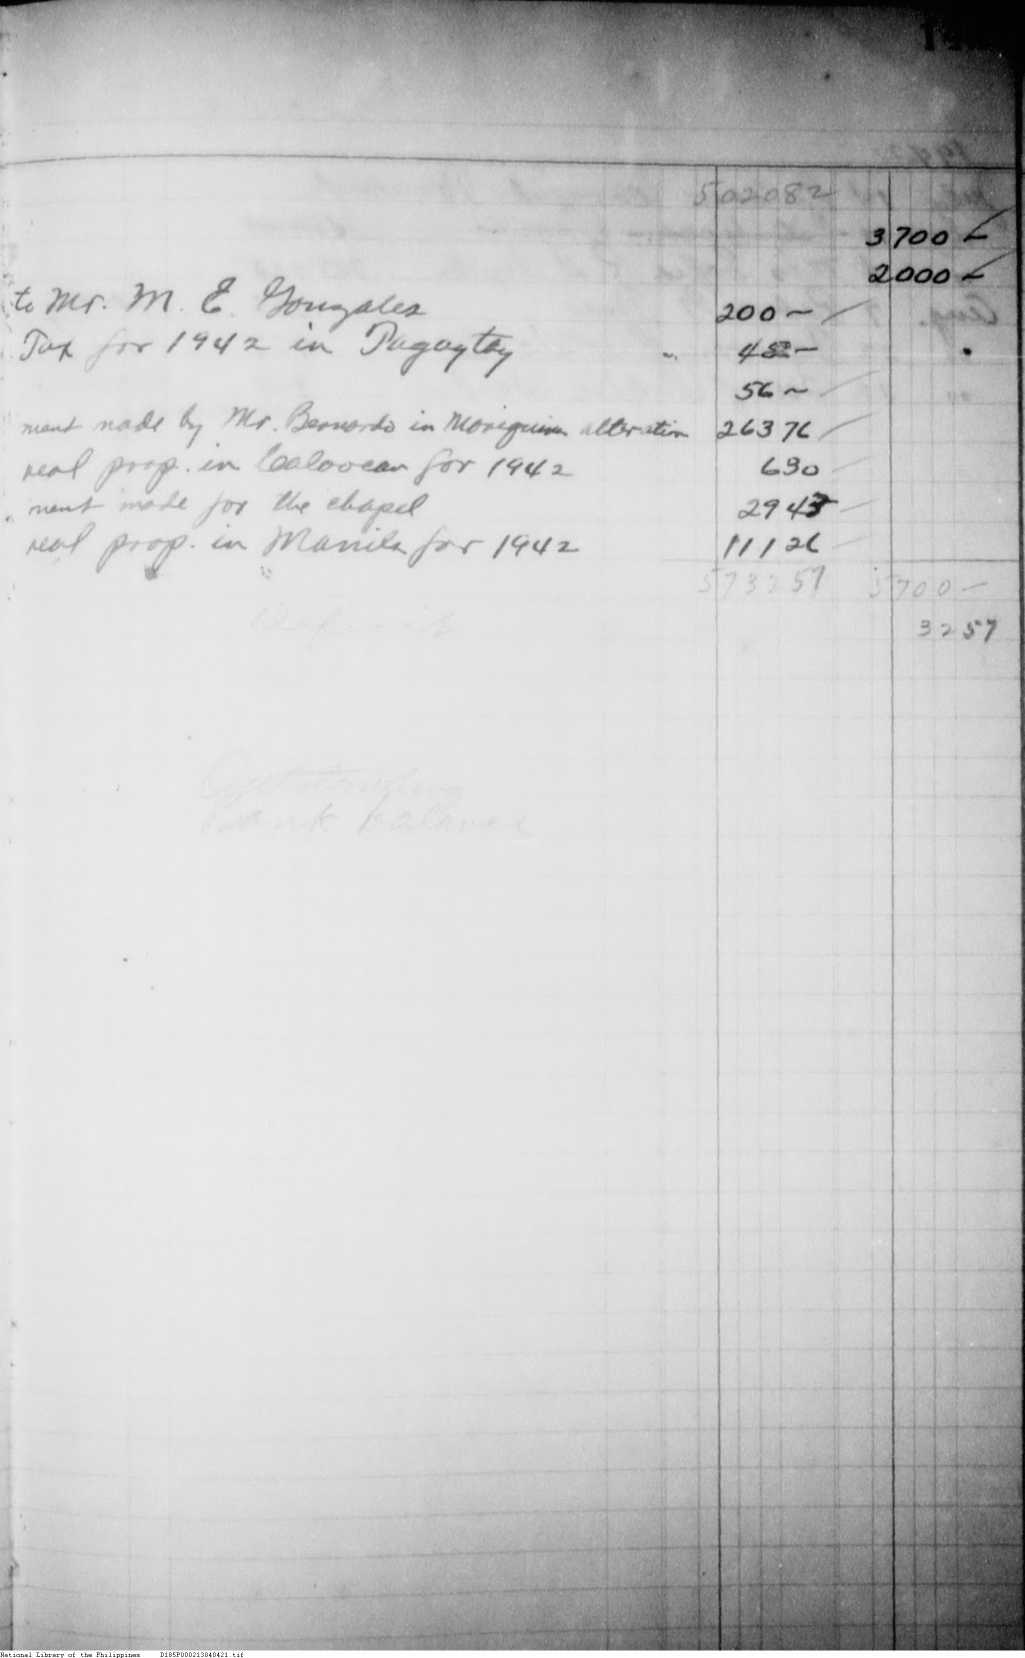 502082
3700 —
2000 —
to Mr. M. E. Gonzales 200 —
Tax for 1942 in Tagaytay " —
56 —
ment made by Mr. Bernardo in alteration 26376
real prop. in Caloocan for 1942 630
ment made for the chapel 2945
real prop. in Manila for 1942 11126
573257 5700 —
Deposit 3257
Outstanding
bank balance
National Library of the Philippines D185P000213040421.tif